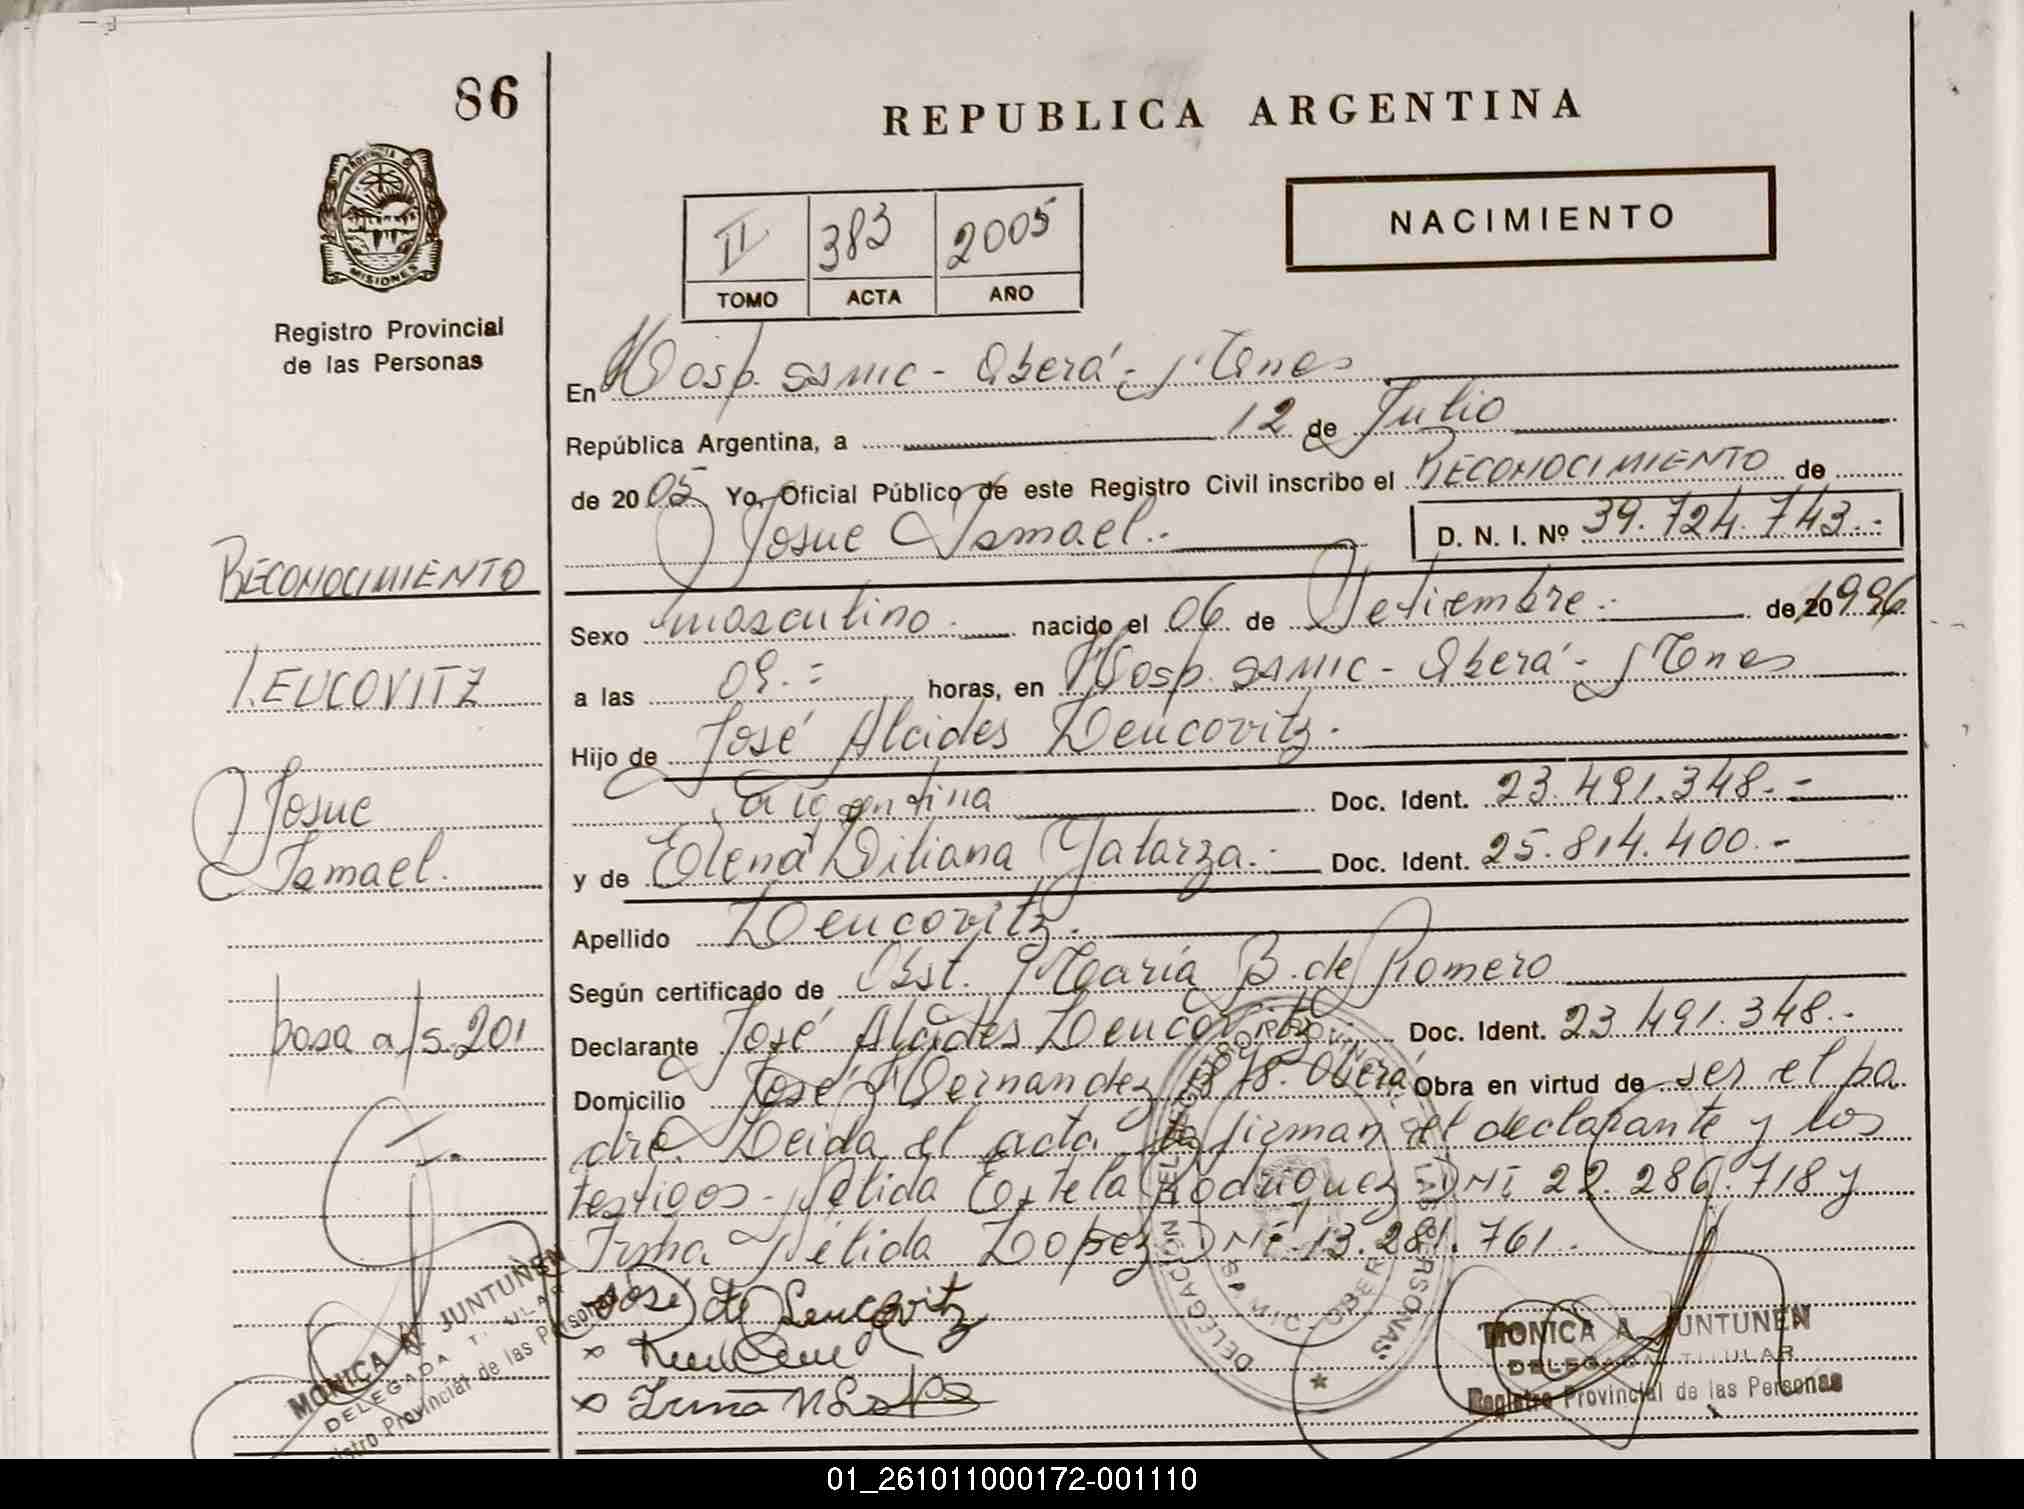 86
REPUBLICA ARGENTINA
PROVINCIA DE
MISIONES
Registro Provincial
de las Personas
NACIMIENTO
II 383 2005
TOMO ACTA AÑO
En Hosp. SAMIC - Oberá - Mnes
República Argentina, a 12 de Julio
de 2005 Yo, Oficial Público de este Registro Civil inscribo el RECONOCIMIENTO de
Josue Ismael.- D. N. I. Nº 39.724.743.-
RECONOCIMIENTO
Sexo masculino.- nacido el 06 de Setiembre.- de 20 1996
LEUCOVITZ
a las 09.= horas, en Hosp. SAMIC - Oberá - Mnes
Hijo de José Alcides Leucovitz.
Josue
Ismael.
argentina Doc. Ident. 23.491.348.-
y de Elena Liliana Galarza.- Doc. Ident. 25.814.400.-
Apellido Leucovitz.
Según certificado de Obst. María B. de Romero
pasa a fs. 201
Declarante José Alcides Leucovitz Doc. Ident. 23.491.348.-
Domicilio José Hernandez 1878. Oberá Obra en virtud de ser el pa
dre. Leida el acta la firman el declarante y los
testigos - Nélida Estela Rodriguez DNI 22.286.718 y
Irma Nélida Lopez DNI 13.281.761.
José Leucovitz
Irma N L
DELEGACIÓN DEL REGISTRO PROVINCIAL DE LAS PERSONAS
OBERA
MONICA A. JUNTUNEN
DELEGADA TITULAR
Registro Provincial de las Personas
MONICA A. JUNTUNEN
DELEGADA TITULAR
Registro Provincial de las Personas
01_261011000172-001110